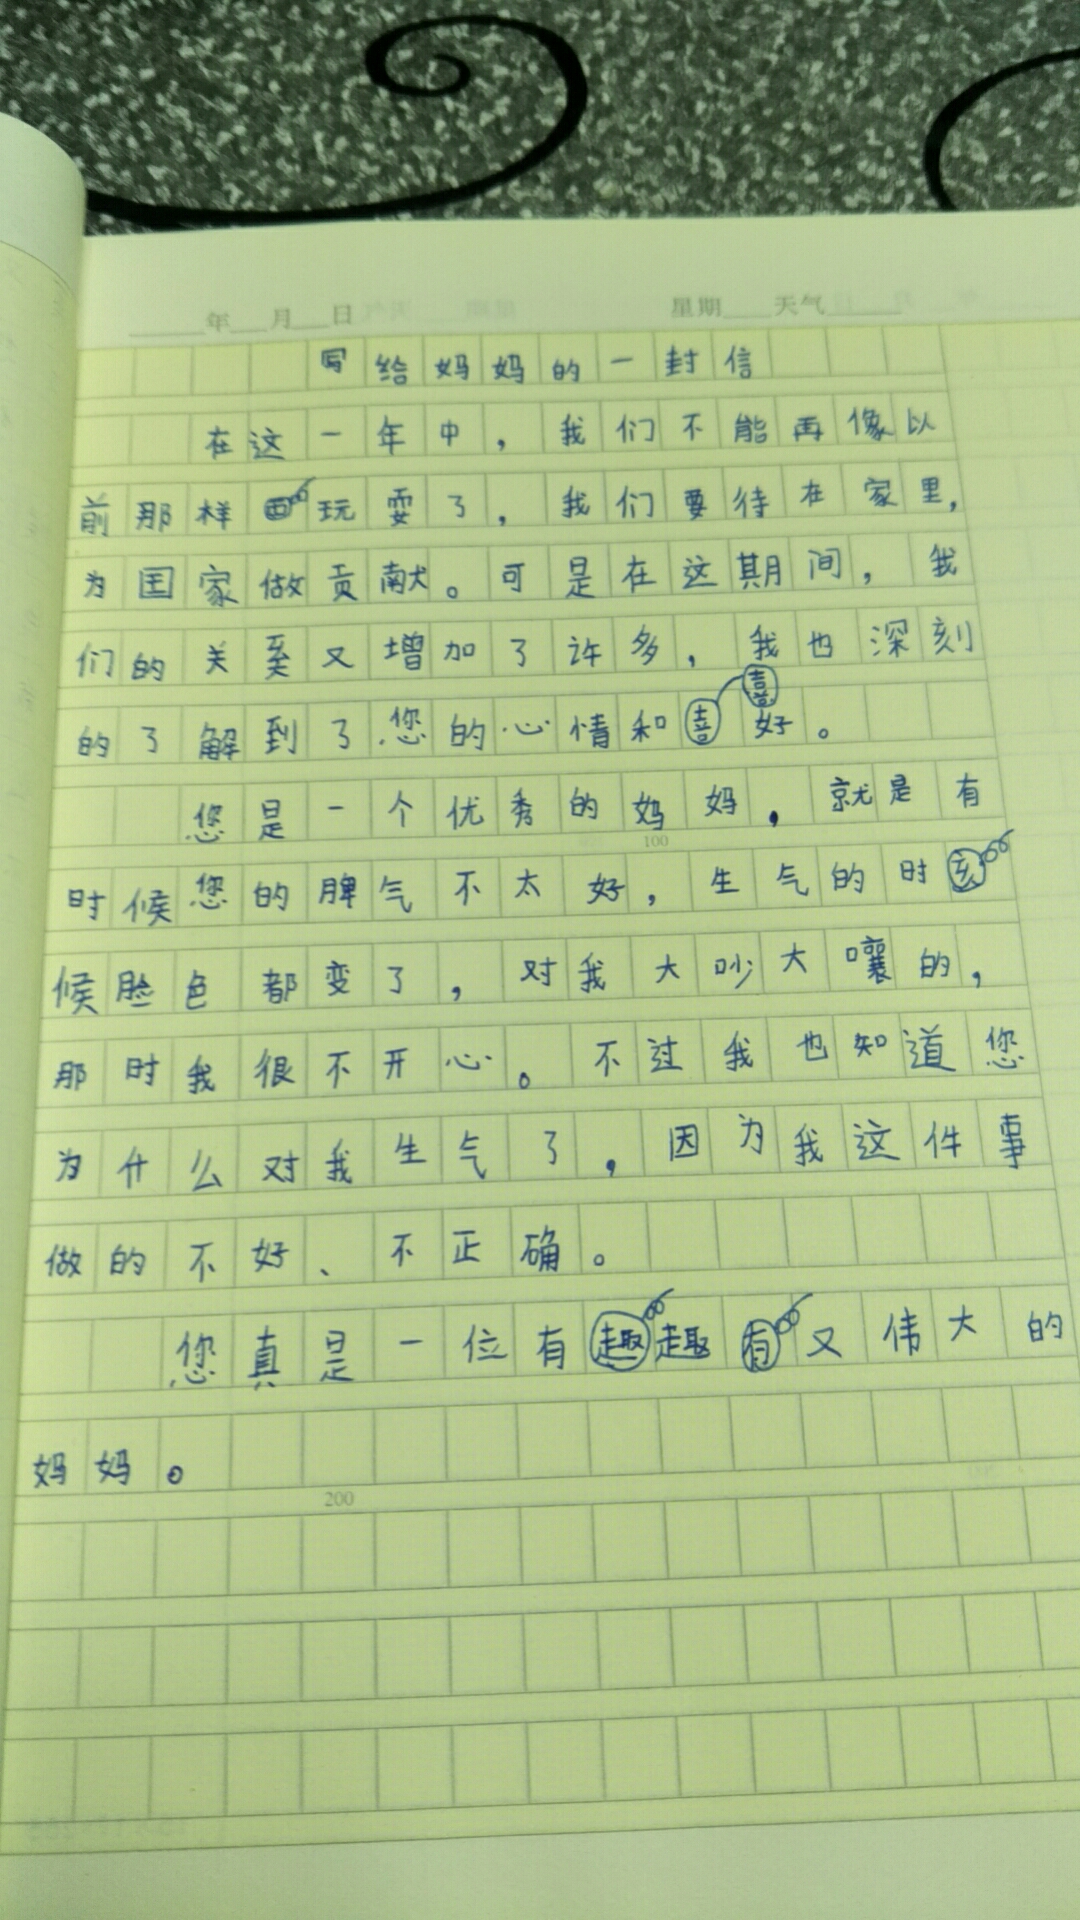 年 月 日 星期 天气
写给妈妈的一封信
在这一年中，我们不能再像以
前那样玩耍了，我们要待在家里，
为国家做贡献。可是在这期间，我
们的关系又增加了许多，我也深刻
的了解到了您的心情和喜好。
您是一个优秀的妈妈，就是有
100
时候您的脾气不太好，生气的时
候脸色都变了，对我大吵大嚷的，
那时我很不开心。不过我也知道您
为什么对我生气了，因为我这件事
做的不好、不正确。
您真是一位有趣又伟大的
妈妈。
200